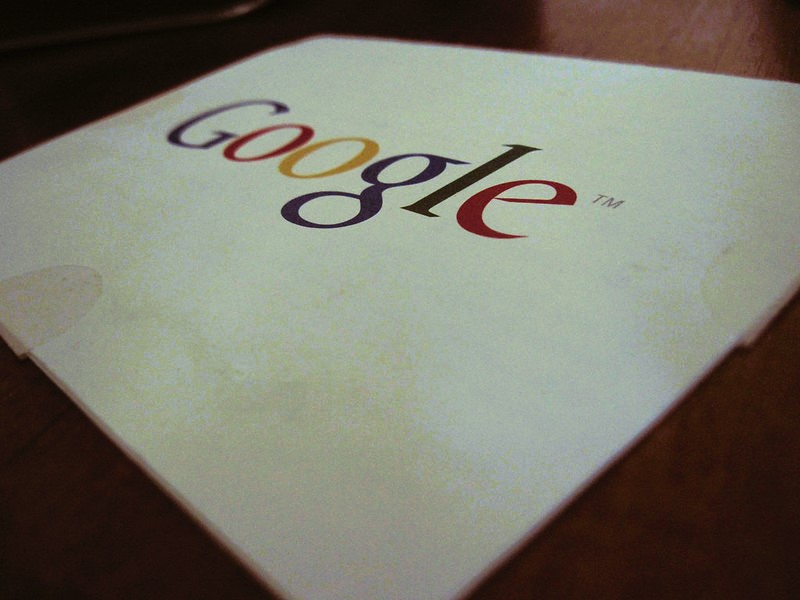 Google™